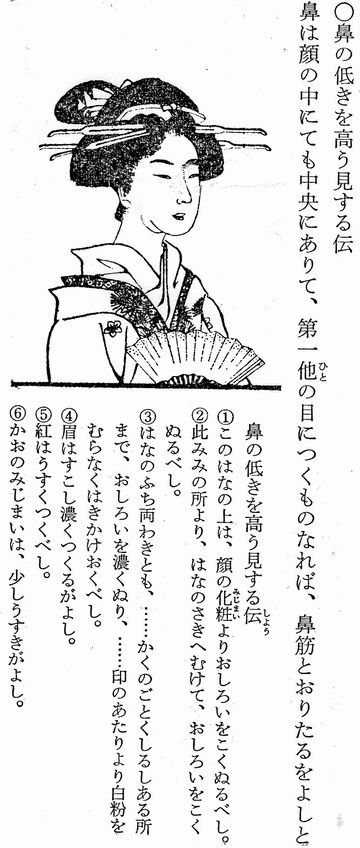 〇鼻の低きを高う見する伝
鼻は顔の中にても中央にありて、第一他の目につくものなれば、鼻筋とおりたるをよしと
ひと
鼻の低きを高う見する伝
しょう
①このはなの上は、顔の化粧よりおしろいをこくぬるべし。
みじまい
②此みみの所より、はなのさきへむけて、おしろいをこく
ぬるべし。
③はなのふち両わきとも、……かくのごとくしるしある所
まで、おしろいを濃くぬり、……印のあたりより白粉を
むらなくはきかけおくべし。
④眉はすこし濃くつくるがよし。
⑤紅はうすくつくべし。
⑥かおのみじまいは、少しうすきがよし。